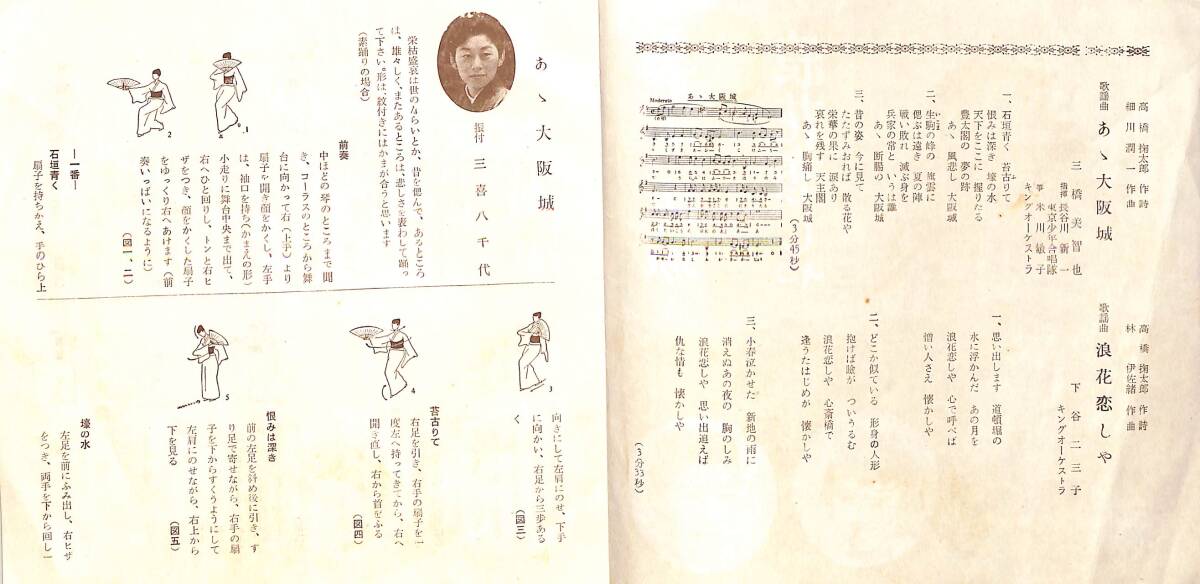 高橋掬太郎 作詩
細川潤一 作曲
歌謡曲 あゝ大阪城
三橋美智也
指揮 長谷川新一
東京少年合唱隊
箏 米川敏子
キングオーケストラ
一、石垣青く 苔古りて
恨みは深き 壕の水
天下をここに 握りたる
豊太閤の 夢の跡
あゝ 風悲し 大阪城
二、生駒の峰の 旗雲に
偲ぶは遠き 夏の陣
戦い敗れ 滅ぶ身を
兵家の常と いうは誰
あゝ 断腸の 大阪城
三、昔の姿 今に見て
たたずみおれば 散る花や
栄華の果に 涙あり
哀れを残す 天主閣
あゝ 胸痛し 大阪城
(3分45秒)
あゝ大阪城
Moderato
高橋掬太郎 作詩
林伊佐緒 作曲
歌謡曲 浪花恋しや
下谷二三子
キングオーケストラ
一、思い出します 道頓堀の
水に浮かんだ あの月を
浪花恋しや 心で呼べば
憎い人さえ 懐かしや
二、どこか似ている 形身の人形
抱けば瞼が ついうるむ
浪花恋しや 心斎橋で
逢うたはじめが 懐かしや
三、小春泣かせた 新地の雨に
消えぬあの夜の 胸のしみ
浪花恋しや 思い出追えば
仇な情も 懐かしや
(3分33秒)
あゝ大阪城
振付 三喜八千代
栄枯盛衰は世のならいとか、昔を偲んで、あるところ
は、雄々しく、またあるところは、悲しさを表わして踊っ
て下さい。形は、紋付きにはかまが合うと思います
(素踊りの場合)
前奏
中ほどの琴のところまで聞
き、コーラスのところから舞
台に向かって右(上手)より
扇子を開き顔をかくし、左手
は、袖口を持ち(かまえの形)
小走りに舞台中央まで出て、
右へひと回りし、トンと右ヒ
ザをつき、顔をかくした扇子
をゆっくり右へあけます(前
奏いっぱいになるように)
(図一、二)
1
2
―一番―
石垣青く
扇子を持ちかえ、手のひら上
向きにして左肩にのせ、下手
に向かい、右足から三歩ある
く
(図三)
3
苔古りて
右足を引き、右手の扇子を一
度左へ持ってきてから、右へ
開き直し、右から首をふる
(図四)
4
恨みは深き
前の左足を斜め後に引き、す
り足で寄せながら、右手の扇
子を下からすくうようにして
左肩にのせながら、右上から
下を見る
(図五)
5
壕の水
左足を前にふみ出し、右ヒザ
をつき、両手を下から回し一